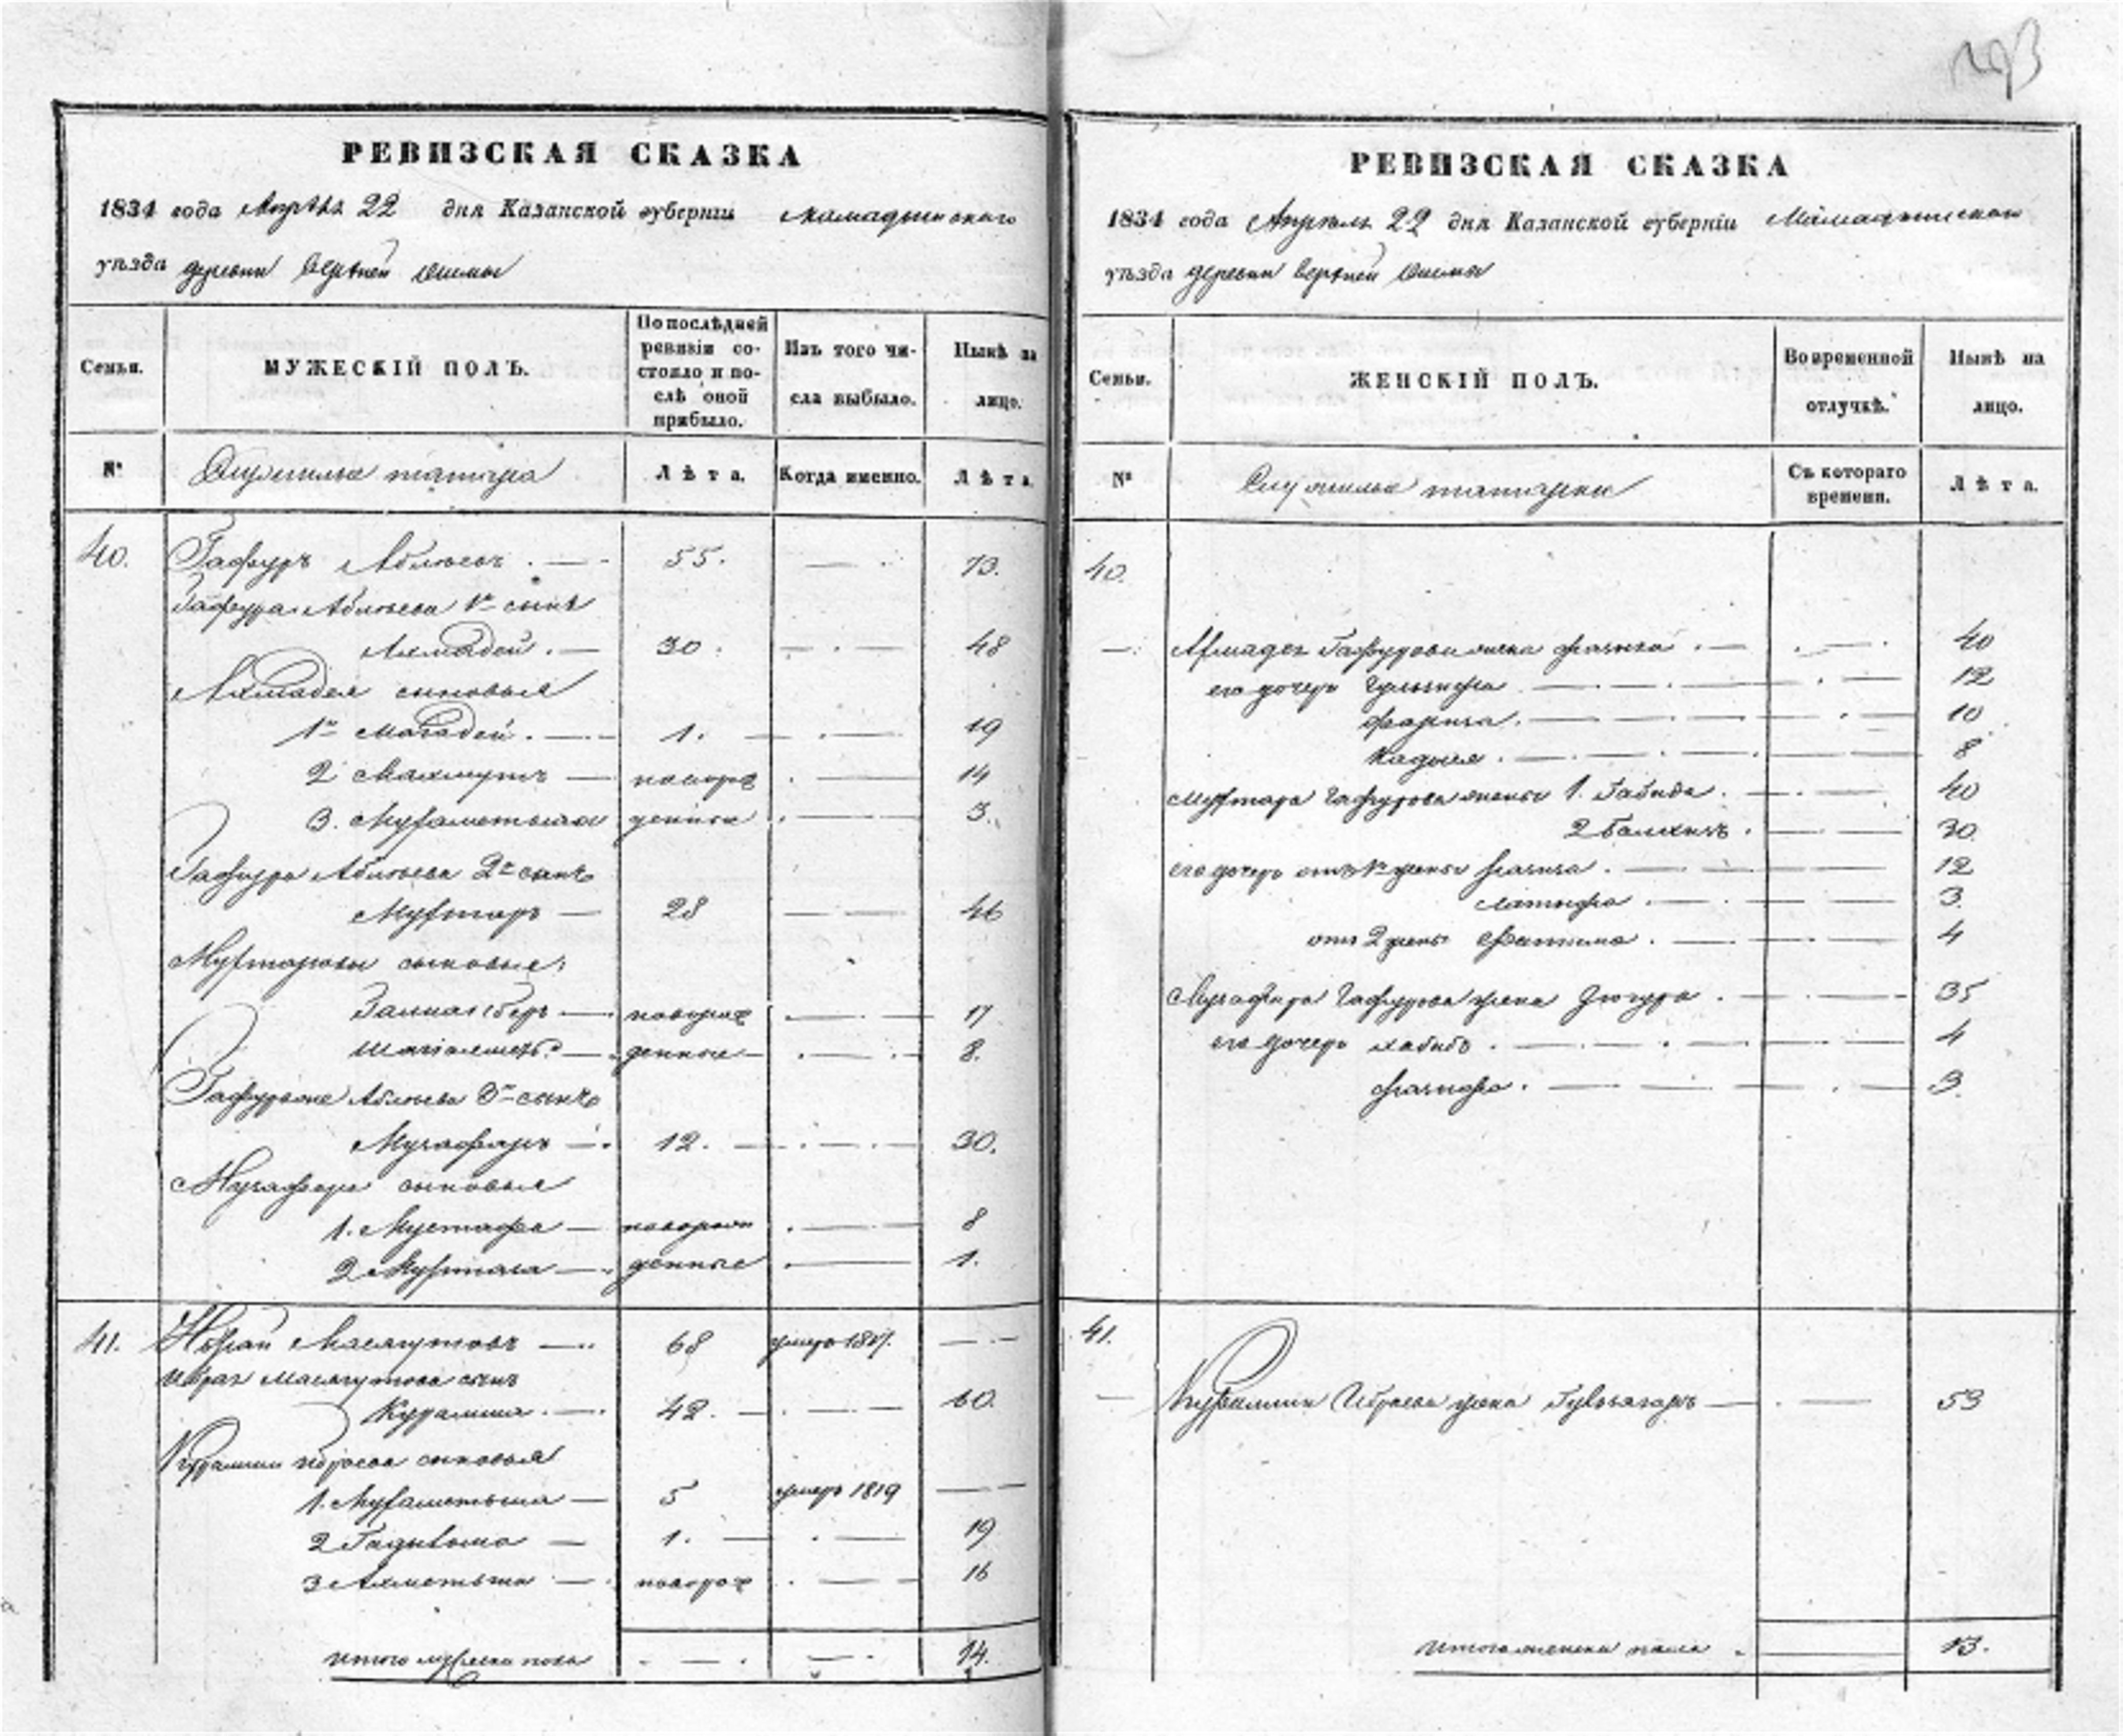 193
РЕВИЗСКАЯ СКАЗКА
1834 года Апреля 22 дня Казанской губерніи Мамадышского
уѣзда деревни Верхней Ошмы
Семьи.
МУЖЕСКІЙ ПОЛЪ.
По послѣдней ревизіи состояло и послѣ оной прибыло.
Изъ того числа выбыло.
Нынѣ на лицо.
№ Служилые татара Лѣта. Когда именно. Лѣта.
40. Гафуръ Аблюсевъ 55. 73.
Гафура Аблюсева 1й сынъ
Ахмадей. 30. 48
Ахмадея сыновья
1й Магадей. 1. 19
2 Махмутъ новорож 14
3. Мухаметьша денные 3.
Гафура Аблюсева 2й сынъ
Мухтаръ 28 46
Мухтаровы сыновья
новорож 17
денные 8.
Гафура Аблюсева 3й сынъ
Музафаръ 12. 30.
Музафара сыновья
1. Мустафа новорож 8
2 Муртаза денные 1.
41. Ибрай Масягутовъ 68 умеръ 18
Ибрая Масягутова сынъ
Курамша. 42. 60.
Курамши Ибраева сыновья
1. Мухаметьша 5 умеръ 1819
2 1. 19
3 Ахметьша новорож 16
итого мужеска пола 14.
РЕВИЗСКАЯ СКАЗКА
1834 года Апреля 22 дня Казанской губерніи Мамадышского
уѣзда деревни Верхней Ошмы
Семьи.
ЖЕНСКІЙ ПОЛЪ.
Во временной отлучкѣ.
Нынѣ на лицо.
№ Служилые татарки Съ котораго времени. Лѣта.
40.
Ахмадея Гафурова жена 40
его дочери 12
10
Кадыля. 8
Мухтара Гафурова жены 1. Габида. 40
2 30
его дочери отъ 1й жены 12
Латифа. 3.
отъ 2 жены Фатима. 4
Музафара Гафурова жена 35
его дочери Хабиба. 4
3.
41.
Курамши Ибраева жена 53
итого женска пола 13.